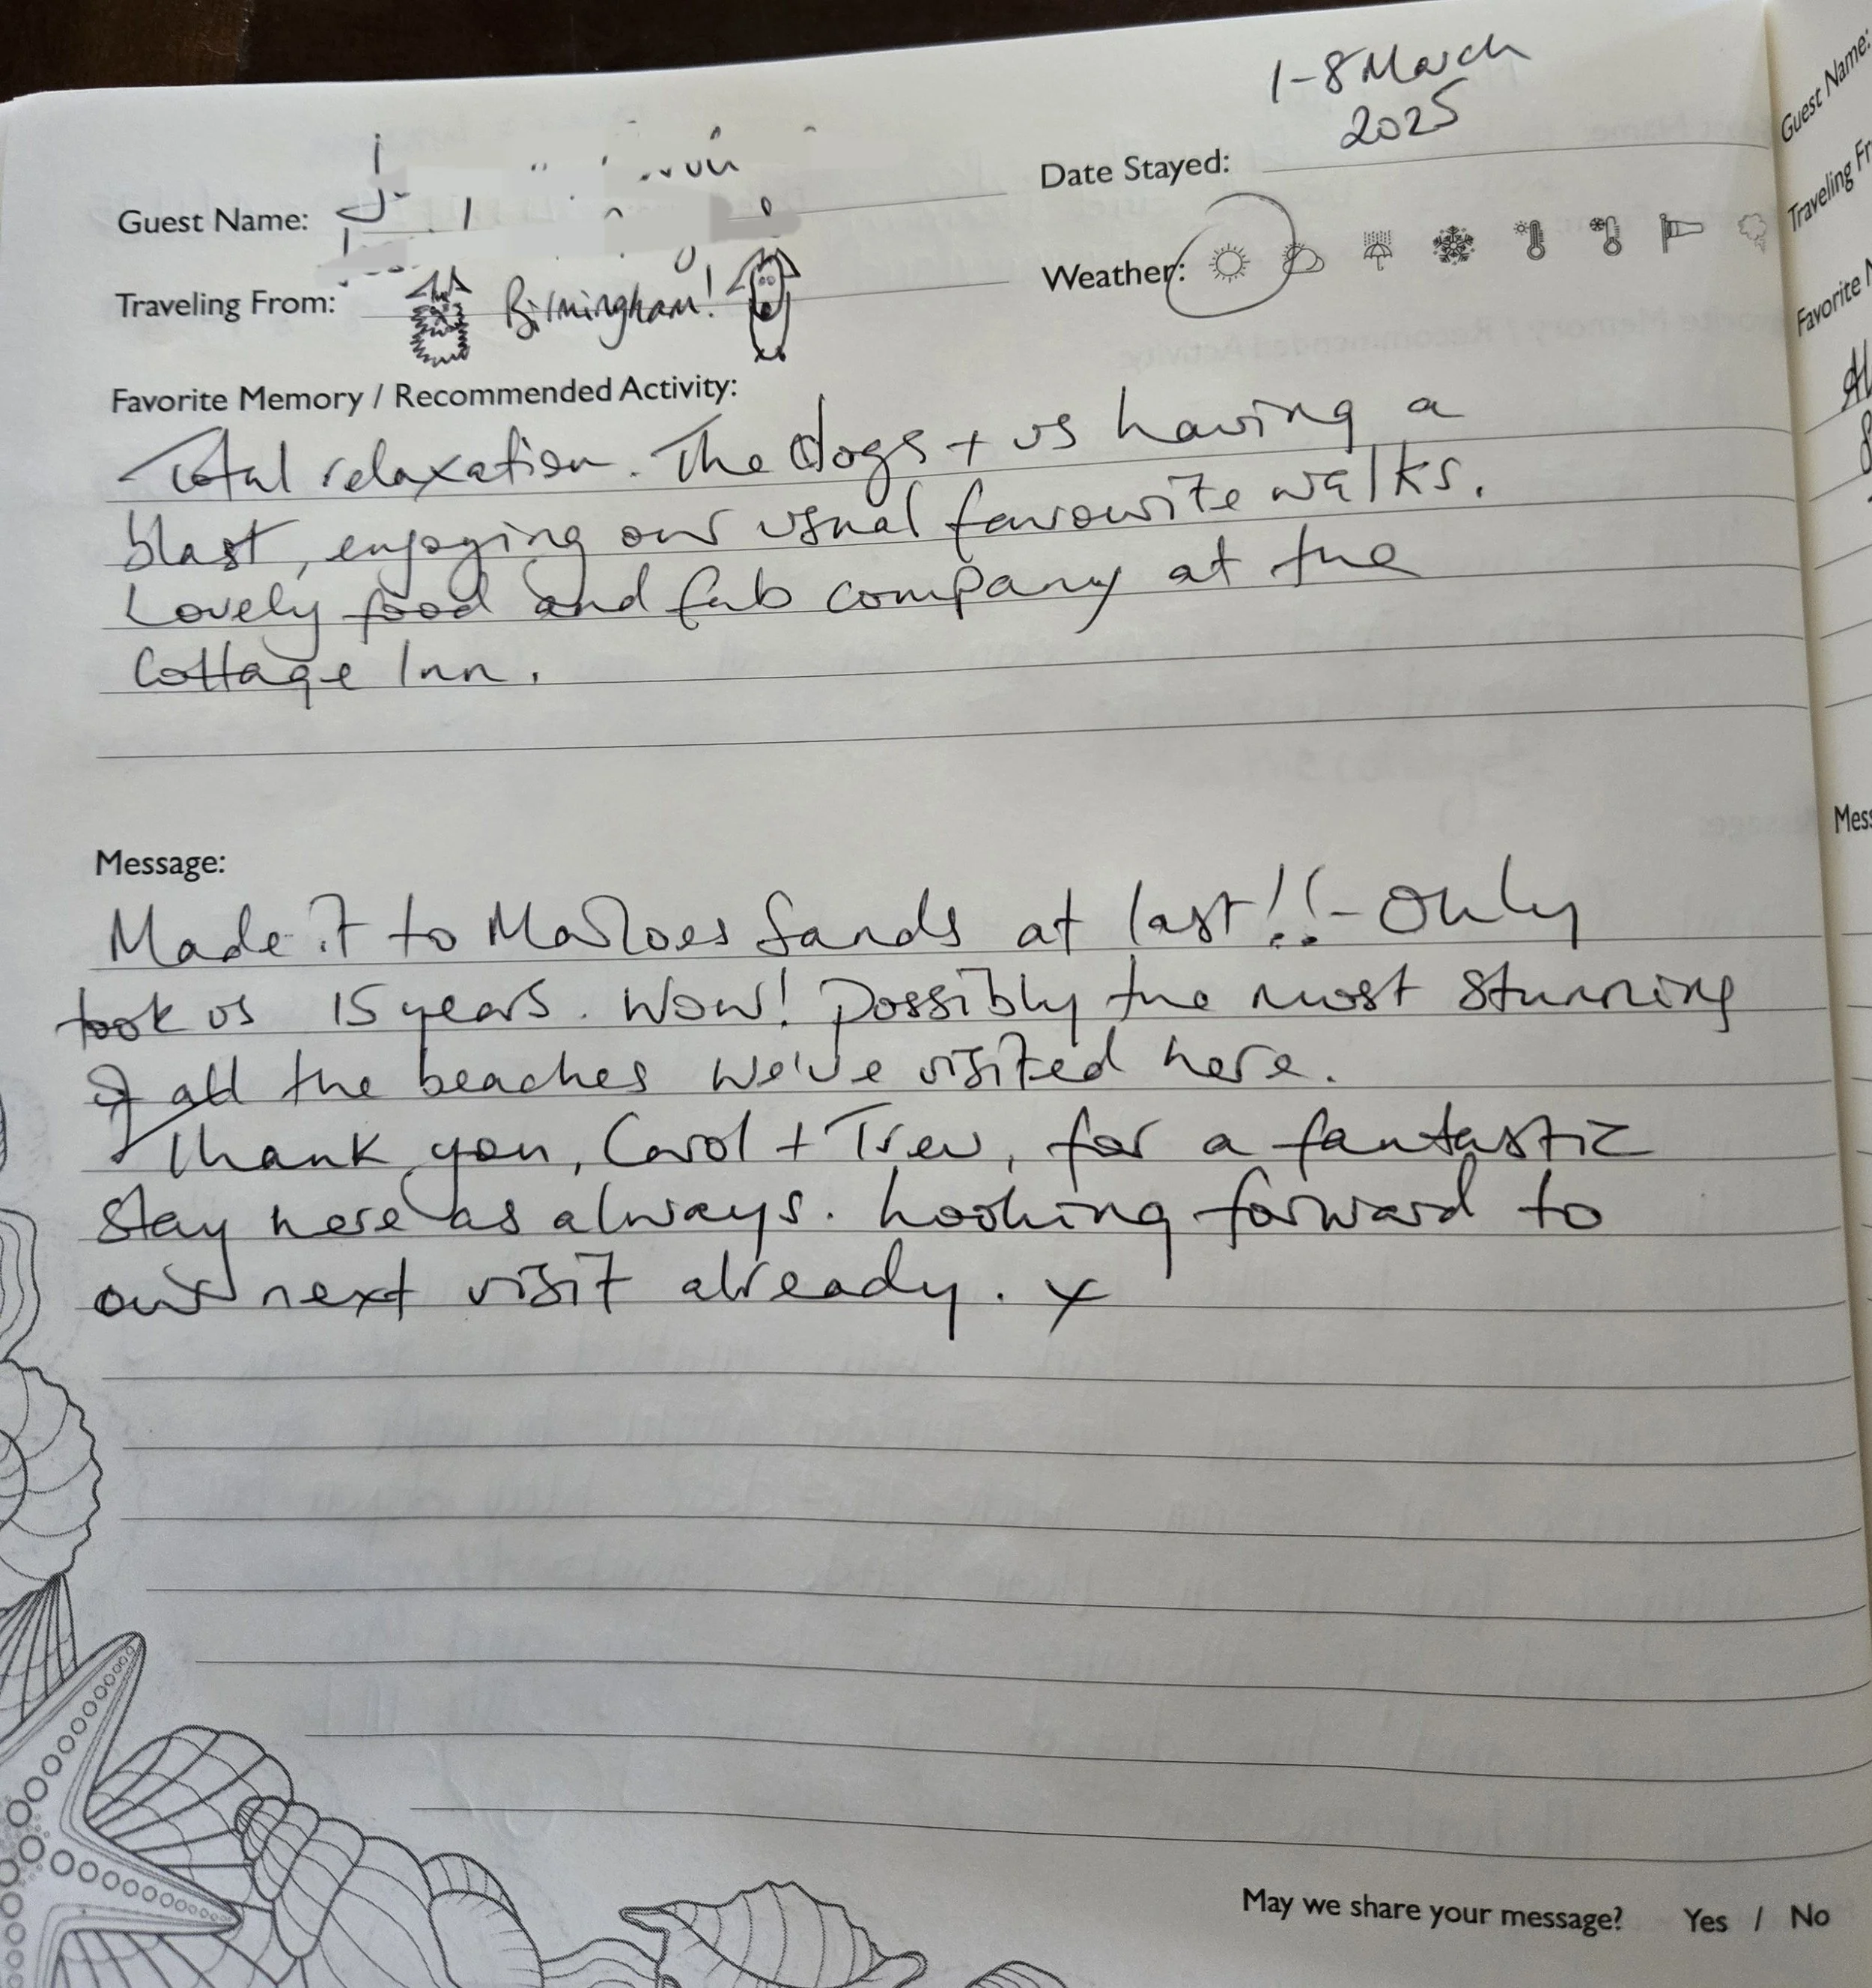 1-8 March
2025
Guest Name:
Date Stayed:
Traveling From: Birmingham!
Weather:
Favorite Memory / Recommended Activity:
Total relaxation. The dogs + us having a
blast, enjoying our usual favourite walks.
Lovely food and fab company at the
Cottage Inn.
Message:
Made it to Marloes Sands at last!! - Only
took us 15 years. Wow! Possibly the most stunning
of all the beaches we've visited here.
Thank you, Carol + Trev, for a fantastic
stay here as always. Looking forward to
our next visit already. x
May we share your message? Yes / No
Guest Name:
Traveling Fr
Favorite M
Mess